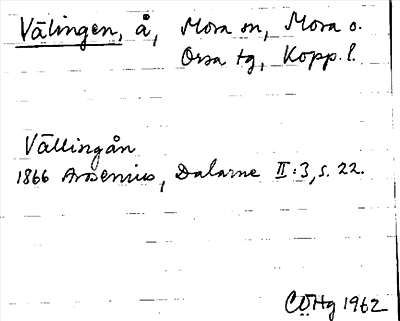 Välingen, å, Mora sn, Mora o.
Orsa tg, Kopp. l.
Vällingån
1866 Arosenius, Dalarne II:3, s. 22.
CÖHg 1962